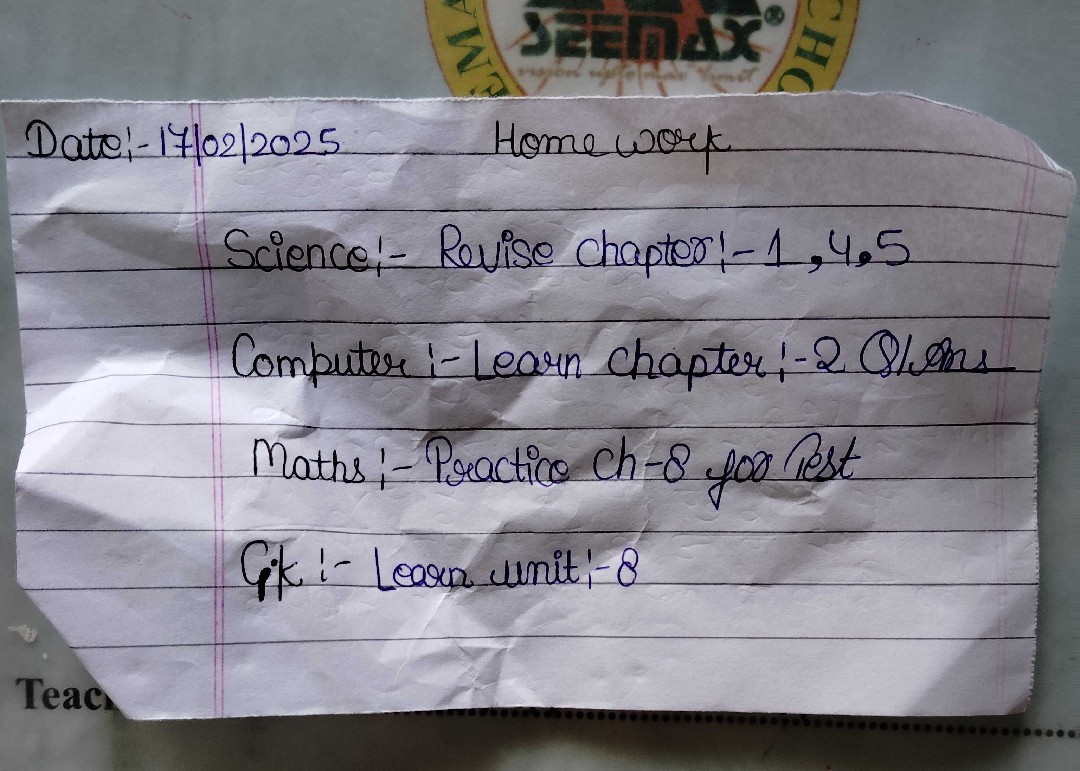 EMA
CHO
SEEMAX®
vision upto max limit
Date:-17/02/2025 Home work
Science:- Revise Chapter:-1,4,5
Computer:- Learn Chapter:-2 Q/Ans
Maths:- Practice Ch-8 for Test
G.k:- Learn unit:-8
Teac